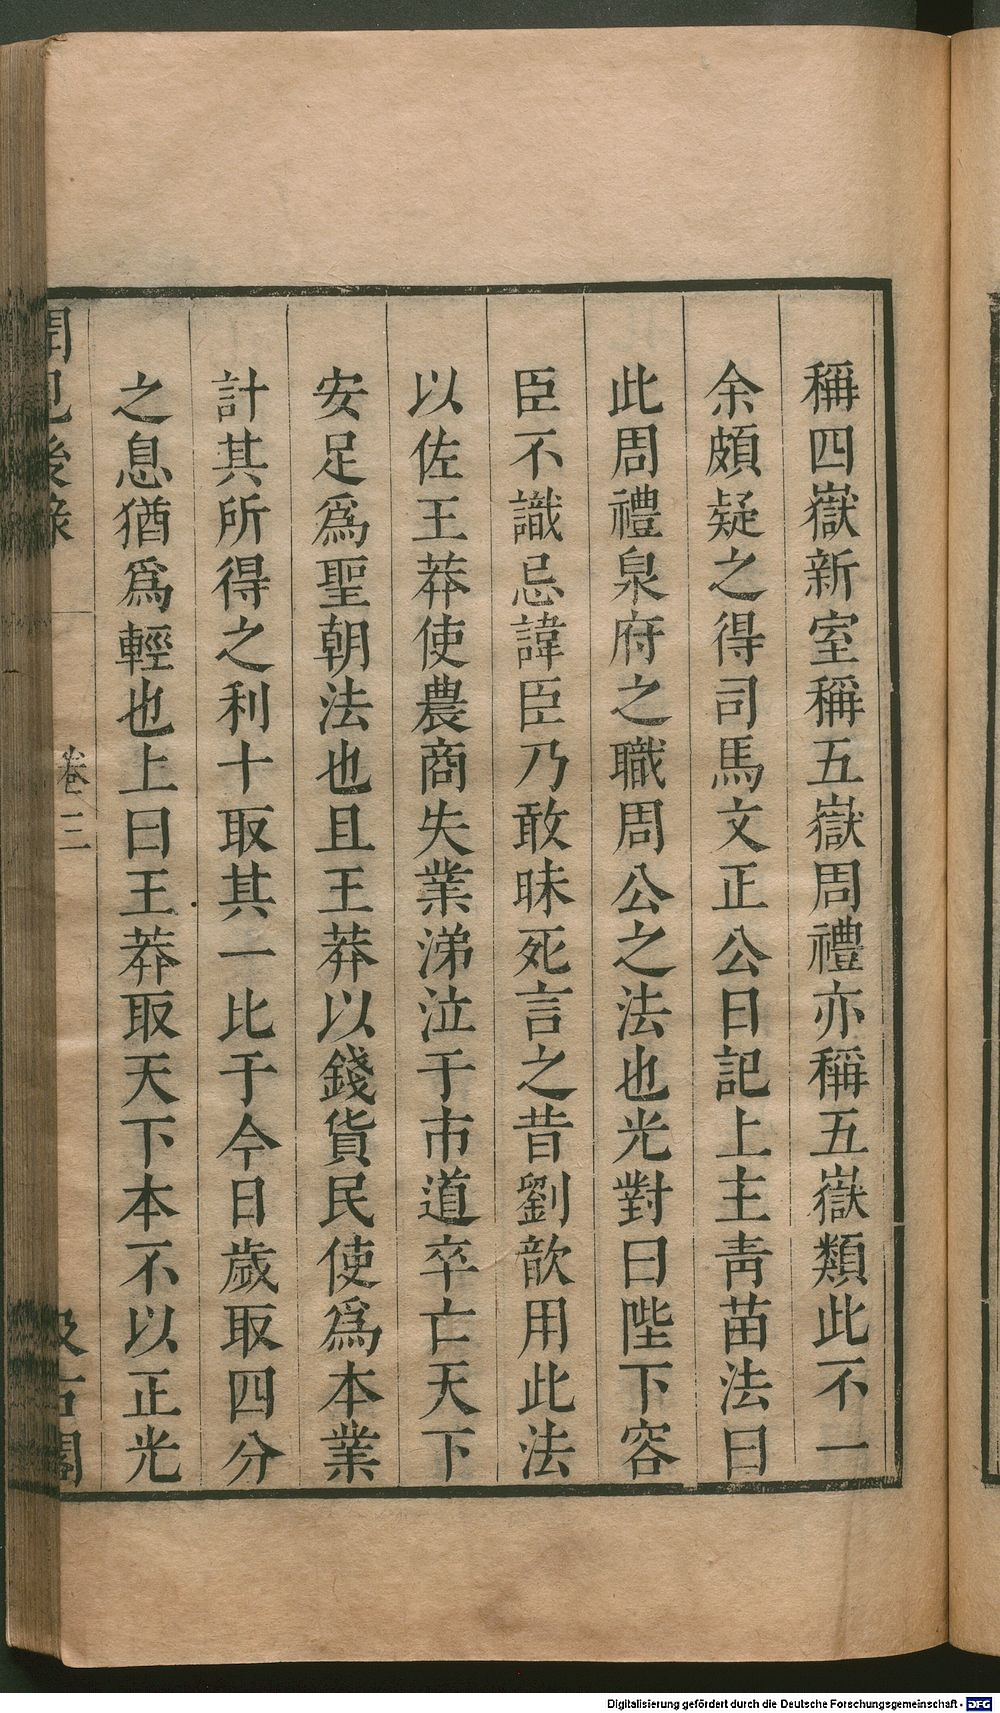 稱四嶽新室稱五嶽周禮亦稱五嶽類此不一
余頗疑之得司馬文正公日記上主靑苗法曰
此周禮泉府之職周公之法也光對曰陛下容
臣不識忌諱臣乃敢昧死言之昔劉歆用此法
以佐王莽使農商失業涕泣于市道卒亡天下
安足爲聖朝法也且王莽以錢貨民使爲本業
計其所得之利十取其一比于今日歲取四分
之息猶爲輕也上曰王莽取天下本不以正光
聞見後錄
卷三
汲古閣
Digitalisierung gefördert durch die Deutsche Forschungsgemeinschaft - DFG